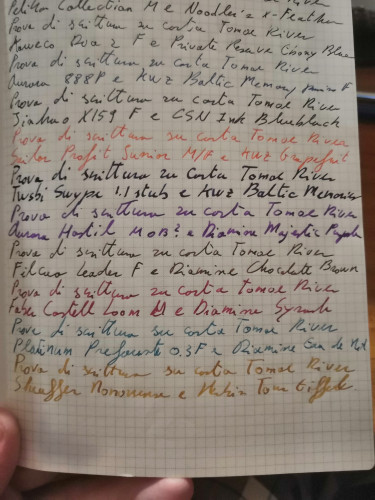 Collection M e Noodler's X-Feather
Prova di scrittura su carta Tomoe River
Duo 2 F e Private Reserve Ebony Blue
Prova di scrittura su carta Tomoe River
Aurora 888P e KWZ Baltic Memory F
Prova di scrittura su carta Tomoe River
Jinhao X159 F e CSN Ink Blueblack
Prova di scrittura su carta Tomoe River
Sailor Profit Junior M/F e KWZ Grapefruit
Prova di scrittura su carta Tomoe River
Twsbi Swipe 1.1 stub e KWZ Baltic Memories
Prova di scrittura su carta Tomoe River
Aurora Hastil e Diamine Majestic Purple
Prova di scrittura su carta Tomoe River
Filcao Leader F e Diamine Chocolate Brown
Prova di scrittura su carta Tomoe River
Faber Castell Loom M e Diamine Syrah
Prova di scrittura su carta Tomoe River
Platinum Preferente 0.3F e Diamine
Prova di scrittura su carta Tomoe River
Sheaffer Nononsense e Tour Eiffel